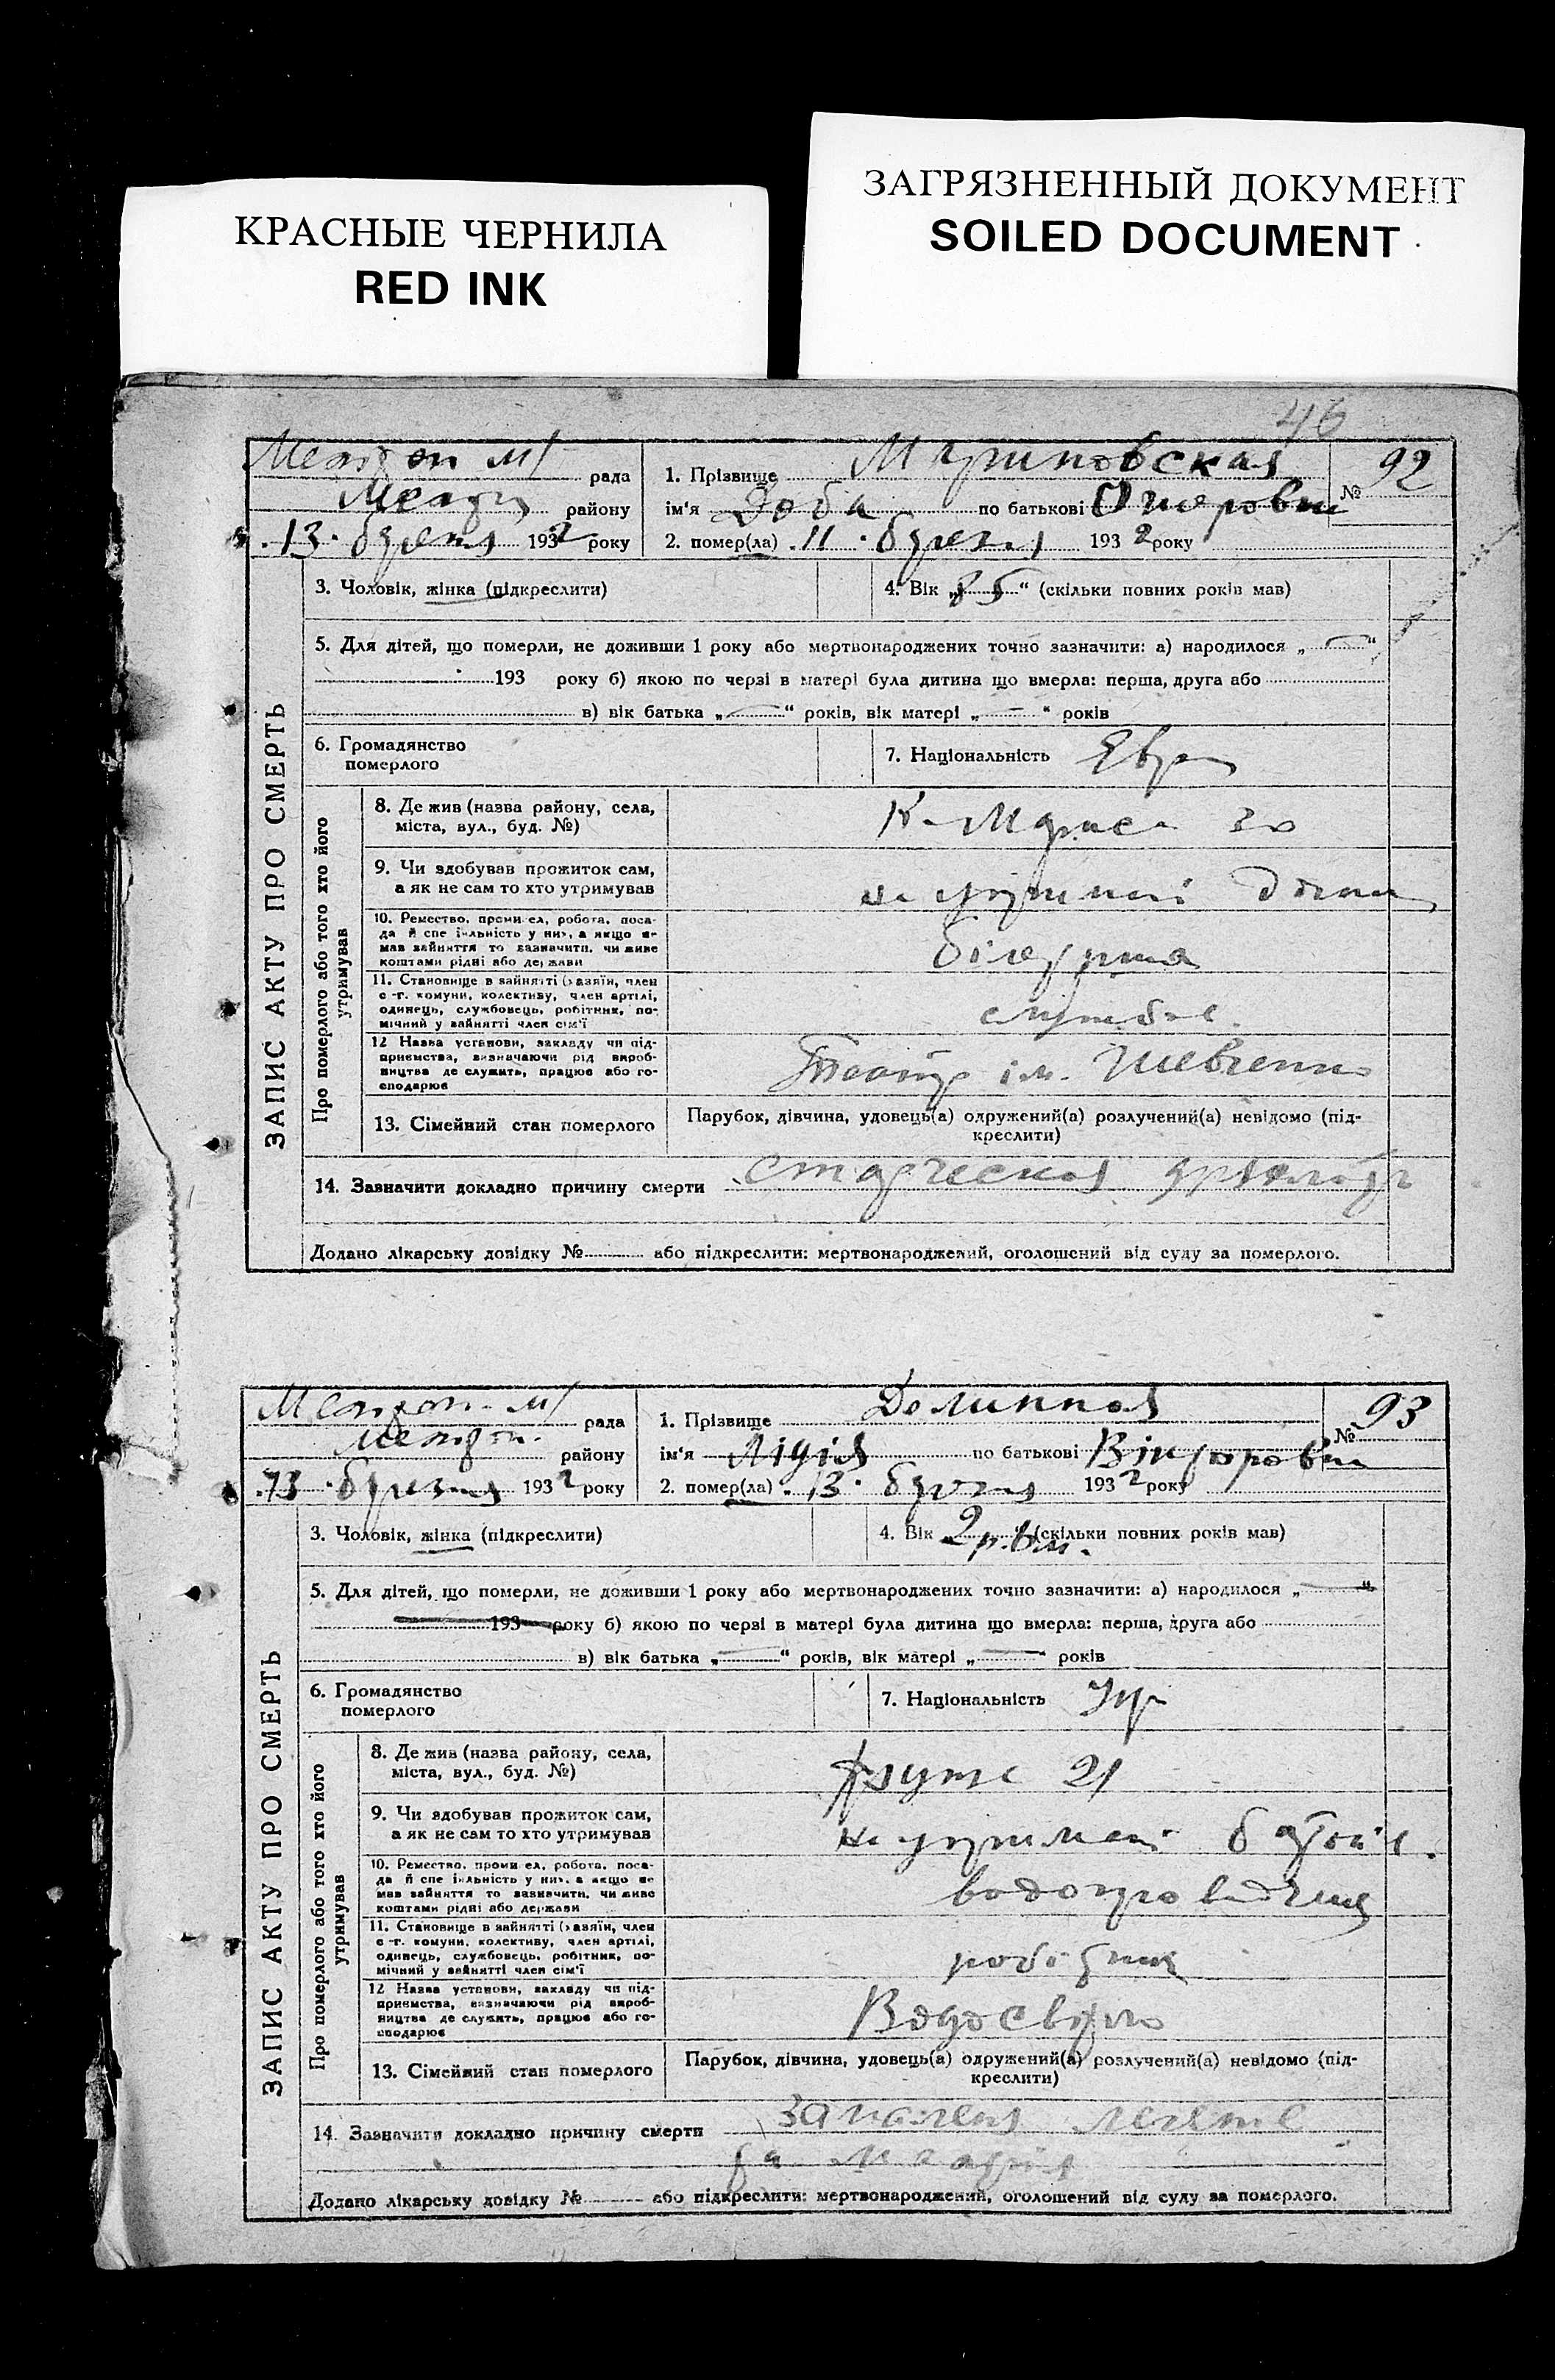 КРАСНЫЕ ЧЕРНИЛА
RED INK
ЗАГРЯЗНЕННЫЙ ДОКУМЕНТ
SOILED DOCUMENT
46
рада
району
13 193 2 року
1. Прізвище Мариновская
ім'я Доба по батькові Ошеровн
№ 92
2. помер(ла) 11 193 2 року
ЗАПИС АКТУ ПРО СМЕРТЬ
3. Чоловік, жінка (підкреслити)
4. Вік „85“ (скільки повних років мав)
5. Для дітей, що померли, не доживши 1 року або мертвонароджених точно зазначити: а) народилося „ “
193 року б) якою по черзі в матері була дитина що вмерла: перша, друга або
в) вік батька „ “ років, вік матері „ “ років
6. Громадянство
померлого
7. Національність Евр
Про померлого або того хто його
утримував
8. Де жив (назва району, села,
міста, вул., буд. №)
К-Маркса 30
9. Чи здобував прожиток сам,
а як не сам то хто утримував
10. Ремество, промисел, робота, поса-
да й спеціяльність у них, а якщо не
мав зайняття то зазначити, чи живе
коштами рідні або держави
11. Становище в зайнятті (хазяїн, член
с-г. комуни, колективу, член артілі,
одинець, службовець, робітник, по-
мічний у зайнятті член сім'ї
12 Назва установи, закладу чи під-
приємства, визначаючи рід вироб-
ництва де служить, працює або го-
сподарює
Театр ім. Шевченк
13. Сімейний стан померлого
Парубок, дівчина, удовець(а) одружений(а) розлучений(а) невідомо (під-
креслити)
14. Зазначити докладно причину смерти старческая
Додано лікарську довідку № або підкреслити: мертвонароджений, оголошений від суду за померлого.
рада
району
13 193 2 року
1. Прізвище Долинная
ім'я Лідія по батькові Вікторовн
№ 93
2. помер(ла) 13 193 2 року
ЗАПИС АКТУ ПРО СМЕРТЬ
3. Чоловік, жінка (підкреслити)
4. Вік „2 р. 6 м.“ (скільки повних років мав)
5. Для дітей, що померли, не доживши 1 року або мертвонароджених точно зазначити: а) народилося „ “
193 року б) якою по черзі в матері була дитина що вмерла: перша, друга або
в) вік батька „ “ років, вік матері „ “ років
6. Громадянство
померлого
7. Національність Укр
Про померлого або того хто його
утримував
8. Де жив (назва району, села,
міста, вул., буд. №)
21
9. Чи здобував прожиток сам,
а як не сам то хто утримував
10. Ремество, промисел, робота, поса-
да й спеціяльність у них, а якщо не
мав зайняття то зазначити, чи живе
коштами рідні або держави
11. Становище в зайнятті (хазяїн, член
с-г. комуни, колективу, член артілі,
одинець, службовець, робітник, по-
мічний у зайнятті член сім'ї
робітник
12 Назва установи, закладу чи під-
приємства, визначаючи рід вироб-
ництва де служить, працює або го-
сподарює
Водосвітло
13. Сімейний стан померлого
Парубок, дівчина, удовець(а) одружений(а) розлучений(а) невідомо (під-
креслити)
14. Зазначити докладно причину смерти
Додано лікарську довідку № або підкреслити: мертвонароджений, оголошений від суду за померлого.